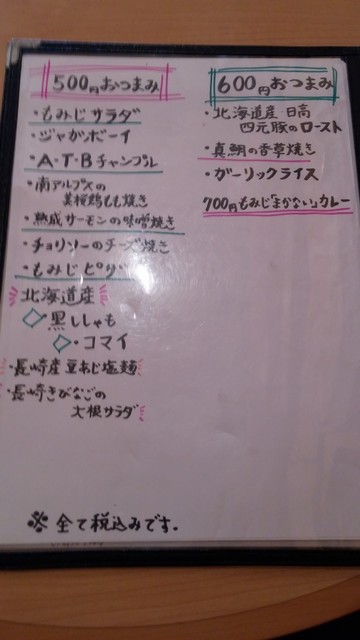 500円おつまみ
・もみじサラダ
・ジャガボーイ
・A・T・Bチャンプル
・南アルプスの
美桜鶏もも焼き
・熟成サーモンの味噌焼き
・チョリソーのチーズ焼き
・もみじピザ
北海道産
◇黒ししゃも
◇・コマイ
・長崎産豆あじ塩麹
・長崎きびなごの
大根サラダ
※全て税込みです。
600円おつまみ
・北海道産 日高
四元豚のロースト
・真鯛の香草焼き
・ガーリックライス
700円もみじ「まかない」カレー